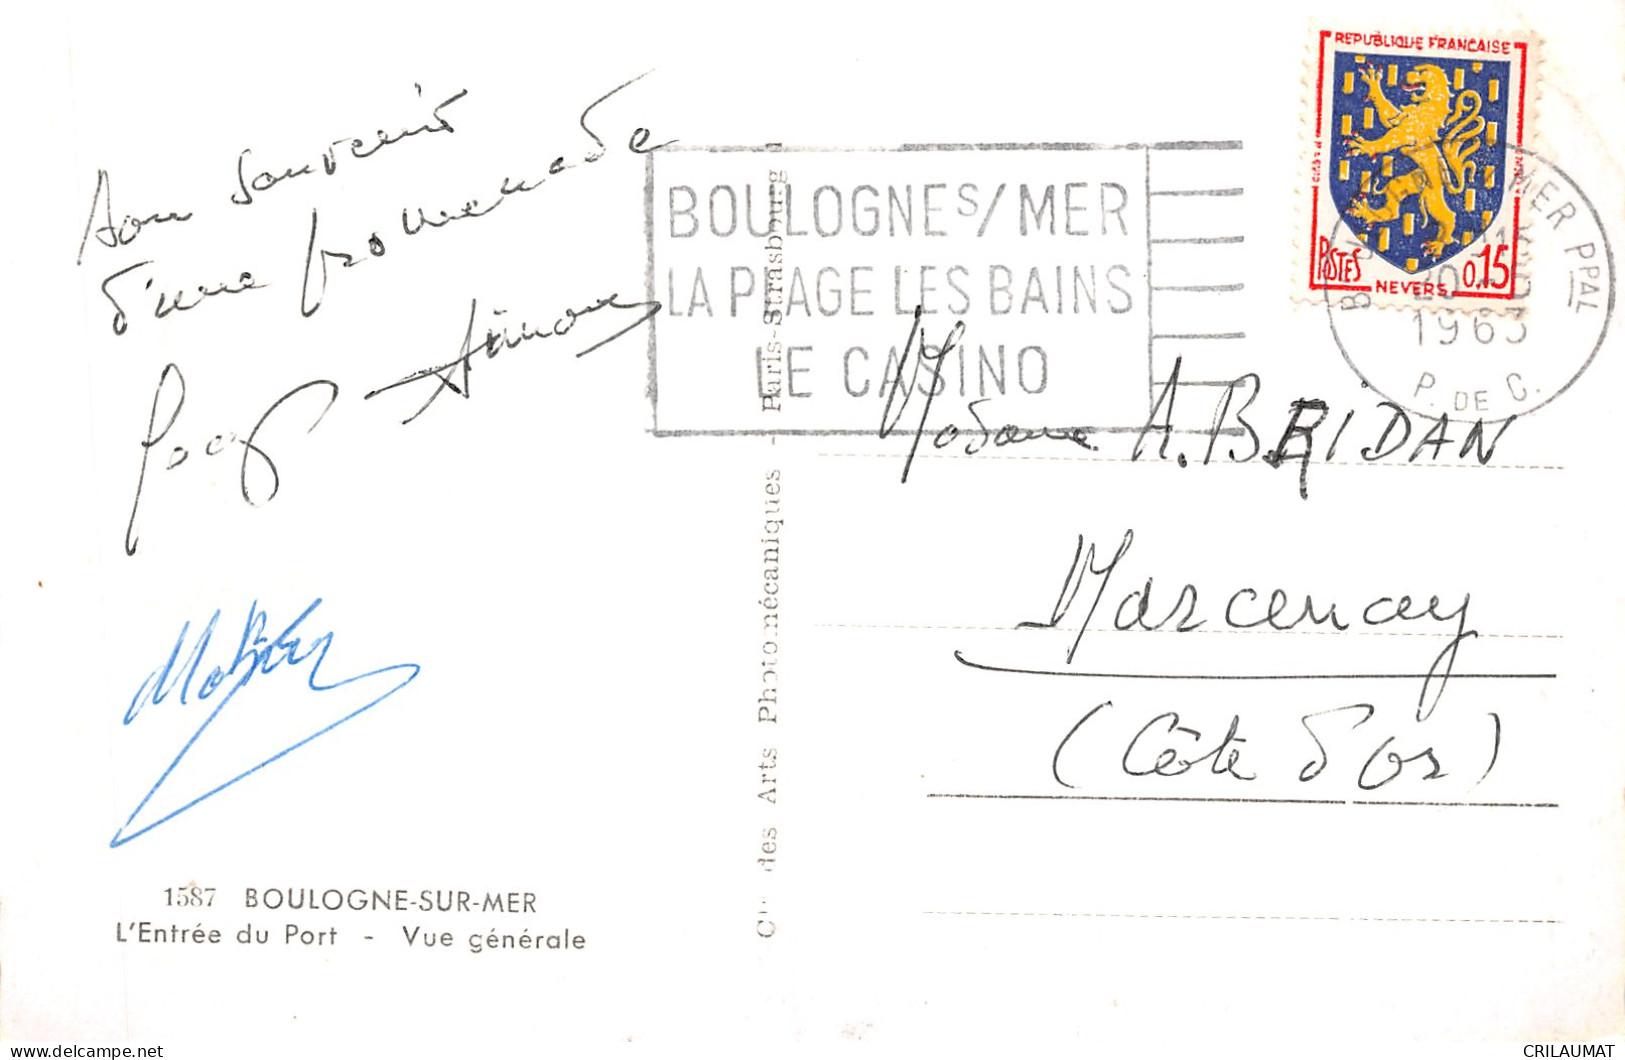 Bon souvenir
d'une promenade
BOULOGNE S/MER
LA PLAGE LES BAINS
LE CASINO
REPUBLIQUE FRANCAISE
POSTES
0,15
NEVERS
MER PPAL
20
1963
P. DE C.
Madame A. BRIDAN
Marcenay
(Côte d'Or)
Cie des Arts Photomécaniques - Paris-Strasbourg
1587 BOULOGNE-SUR-MER
L'Entrée du Port - Vue générale
CRILAUMAT
delcampe.net